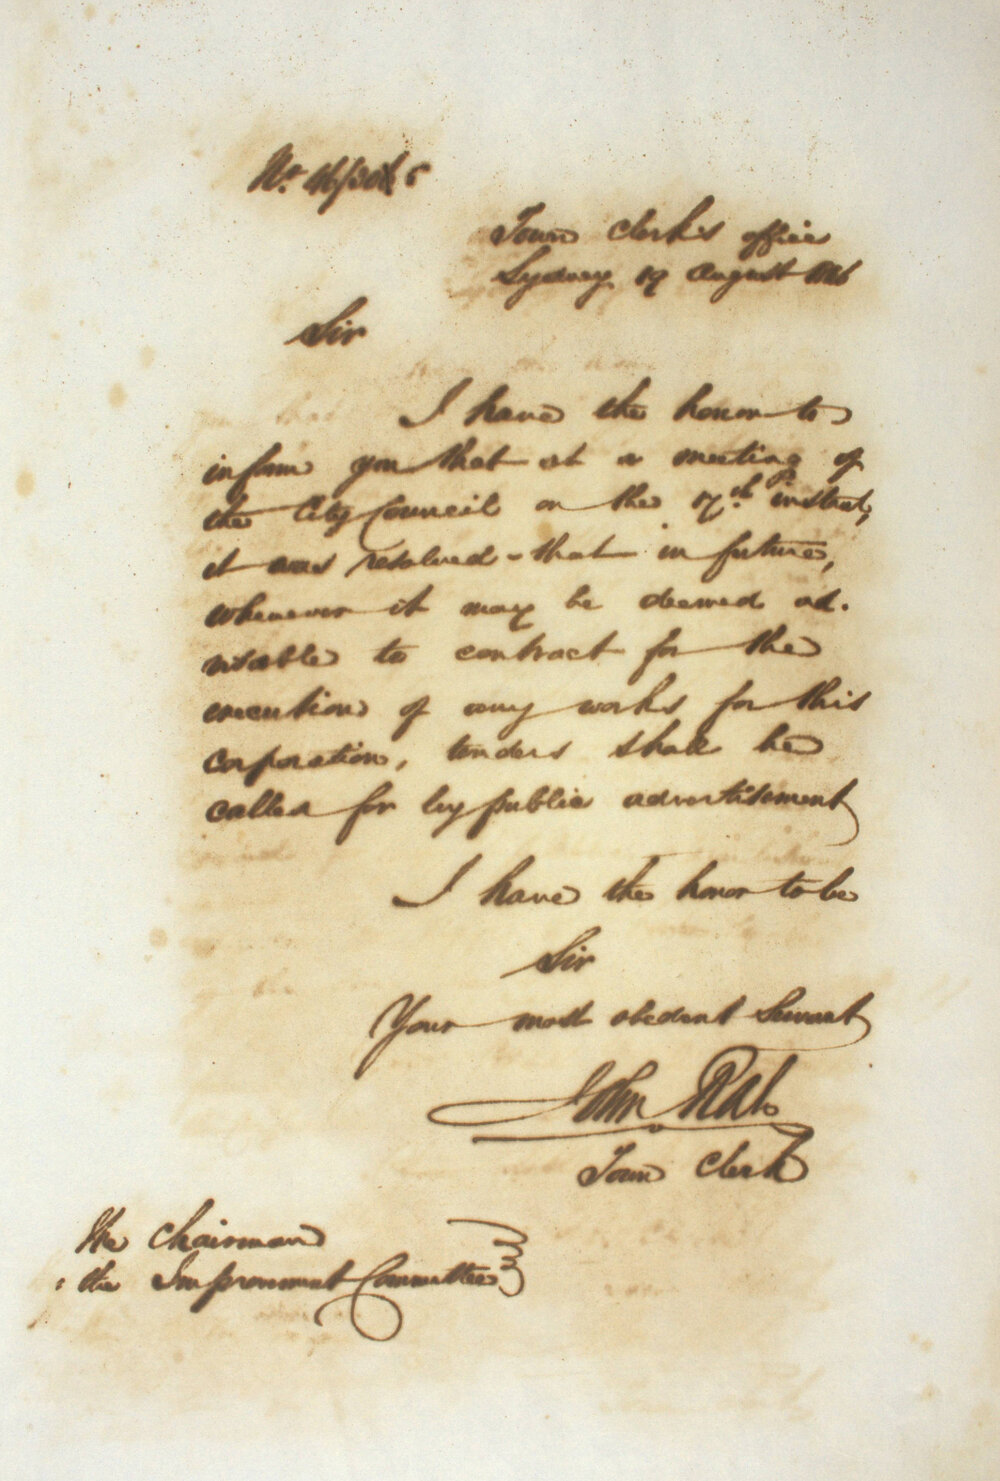 No. 46/30 6
Town Clerk's office
Sydney 19 August 1846
Sir
I have the honor to
inform you that at a meeting of
the City Council on the 17th instant,
it was resolved that in future,
whenever it may be deemed ad-
visable to contract for the
execution of any works for this
corporation, tenders shall be
called for by public advertisement
I have the honor to be
Sir
Your most obedient Servant
John Rae
Town Clerk
The Chairman
: the Improvement Committee